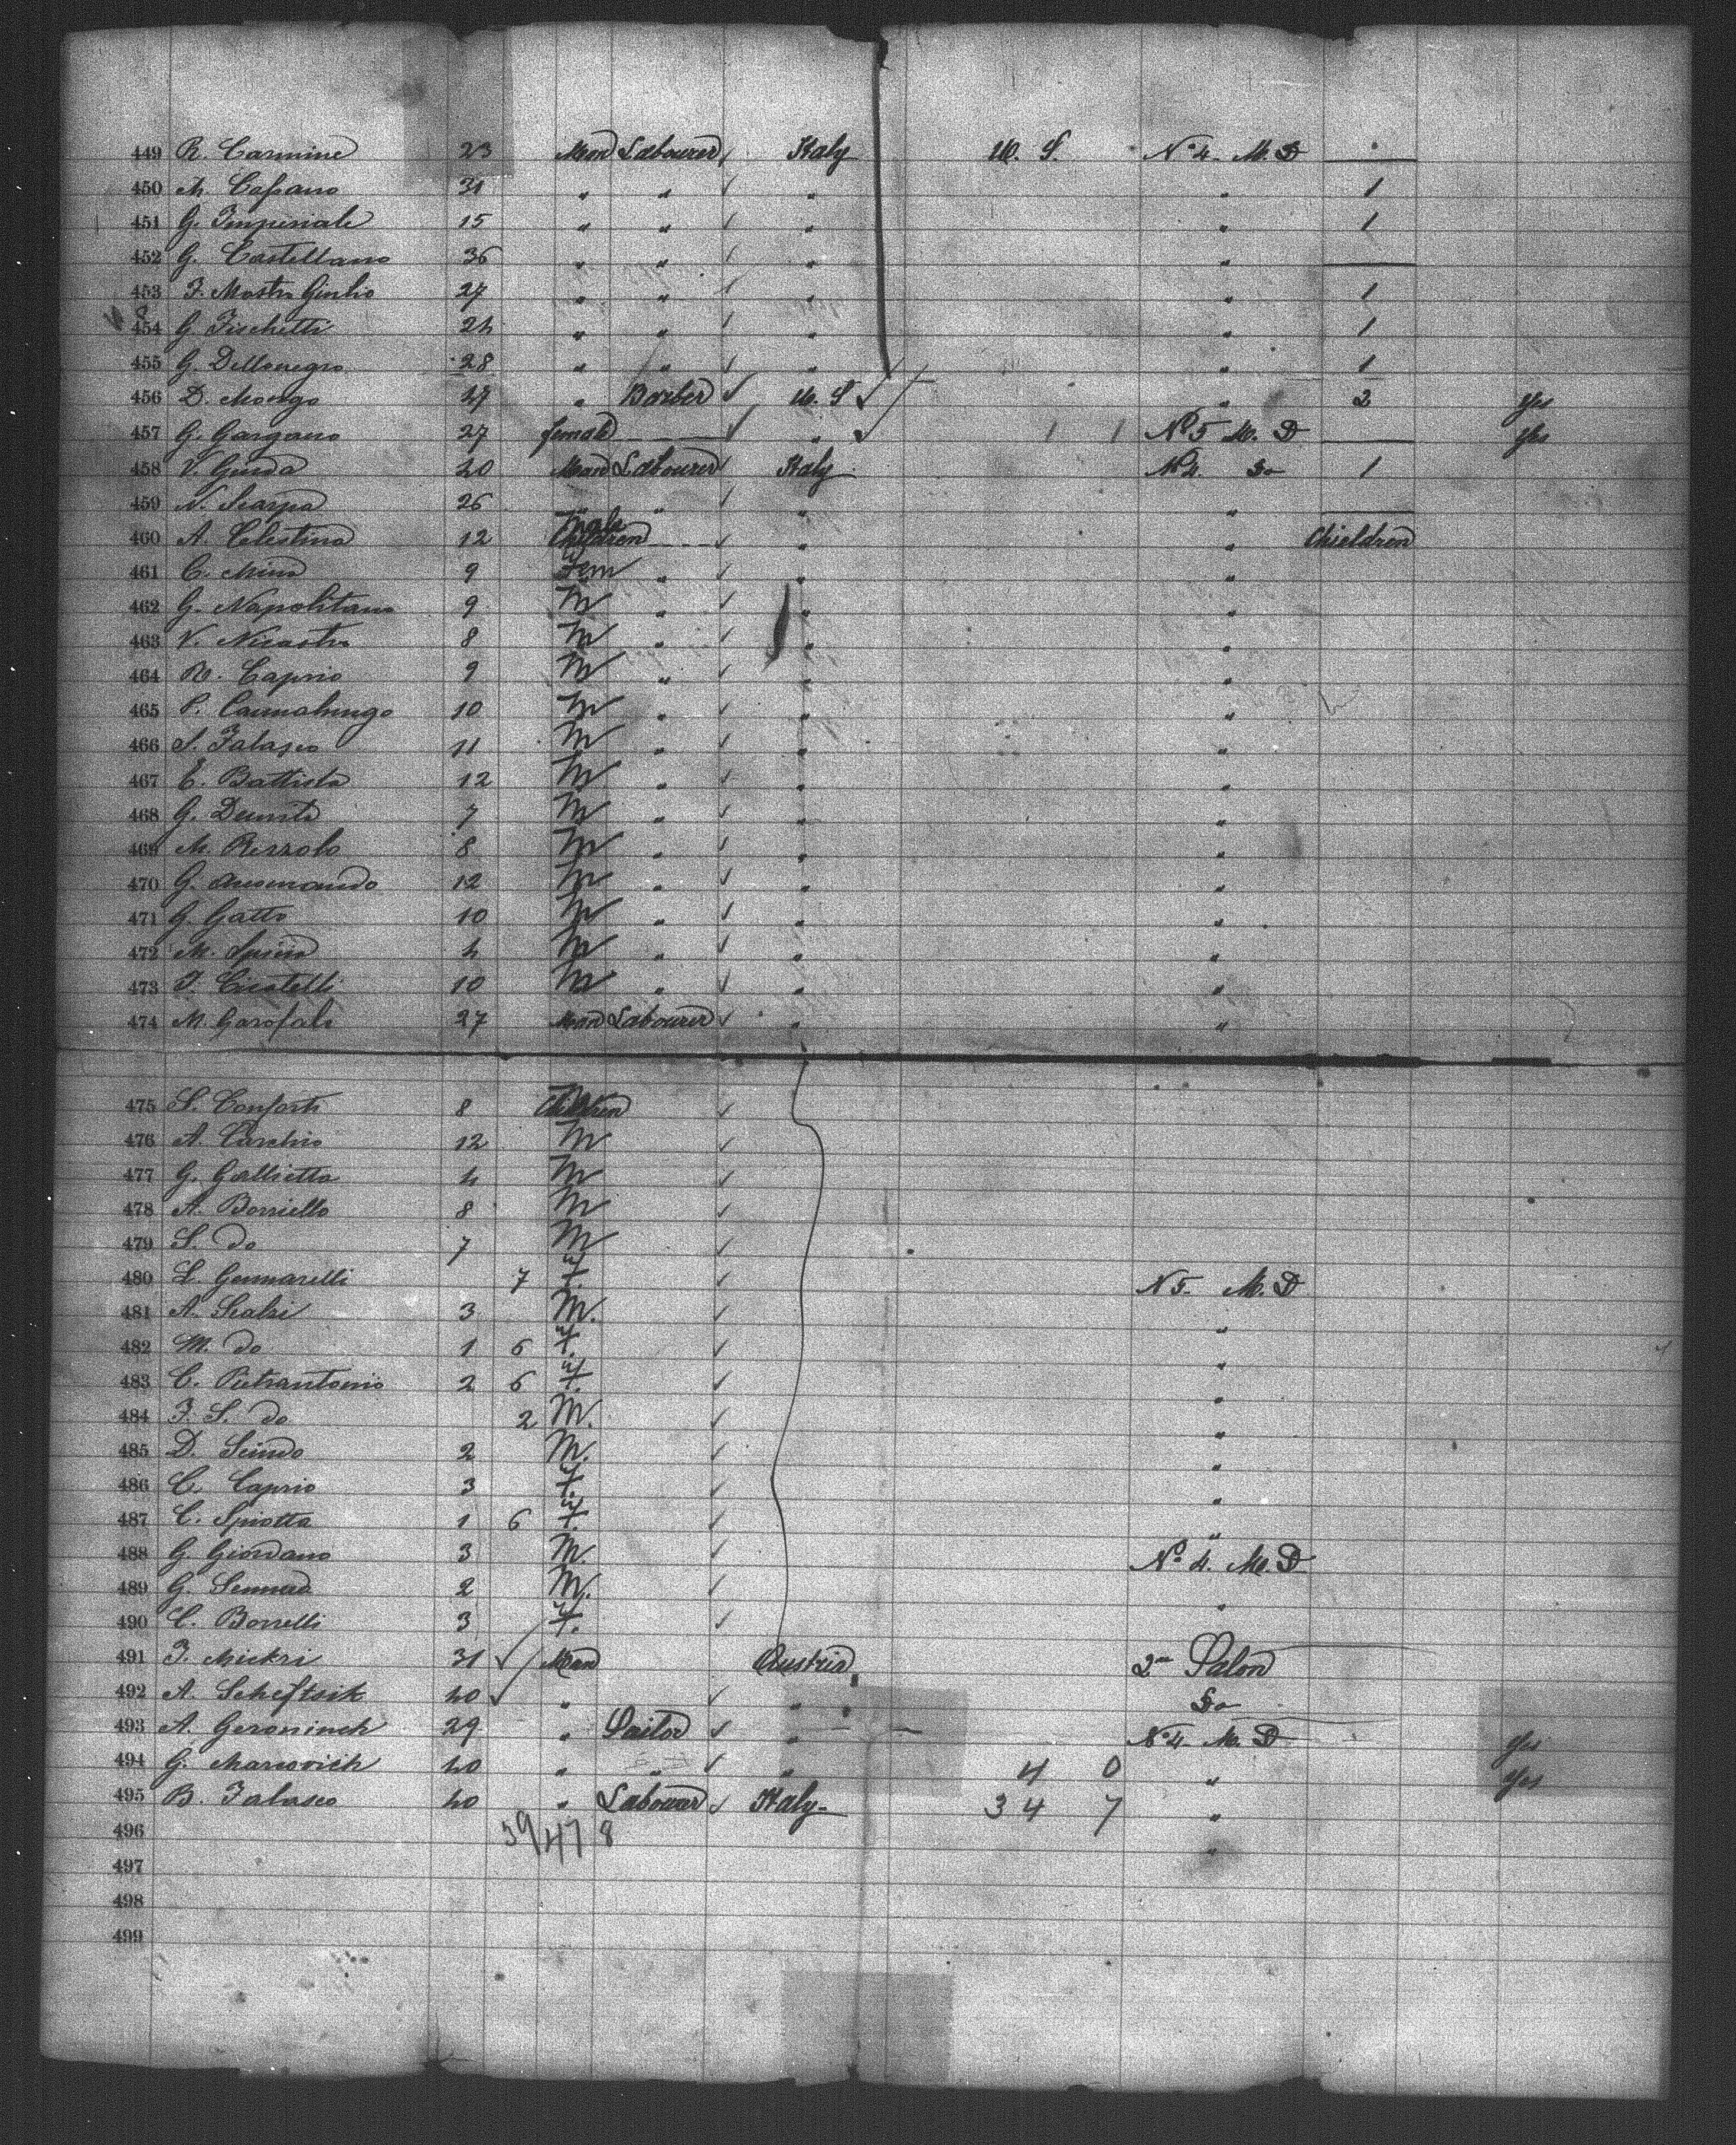 449 R. Carmine 23 Man Labourer Italy U. S. No 4 M. D —
450 M. Cafano 31 " " " " 1
451 G. Imperiale 15 " " " " 1
452 G. Castellano 36 " " " " —
453 F. Mastro Giulio 27 " " " " 1
454 G. Fischetti 24 " " " " 1
455 G. Dellonegro 28 " " " " 1
456 D. Mongo 27 " Barber U. S " 2 yes
457 G. Gargano 27 female — " 1 1 No 5 M. D — yes
458 V. Giuda 20 Man Labourer Italy No 4. Do 1
459 N. Scarpa 26 " " " " —
460 A. Celestino 12 Male Children " " Chieldren
461 C. Mino 9 Fem " " "
462 G. Napolitano 9 M " " "
463 V. Nicastro 8 M " " "
464 R. Caprio 9 M " " "
465 P. 10 M " " "
466 S. Falasco 11 M " " "
467 E. Battista 12 M " " "
468 G. 7 M " " "
469 M. 8 M " " "
470 G. 12 M " " "
471 G. Gatto 10 M " " "
472 M. 4 M " " "
473 F. Cicatelli 10 M " " "
474 M. Garofalo 27 Man Labourer " "
475 S. Conforti 8 Children
476 A. 12 M
477 G. Gallietta 4 M
478 A. Borriello 8 M
479 S. do 7 M
480 L. Gennarelli 7 f. N 5 M. D
481 A. Scalzi 3 M. "
482 M. do 1 6 f. "
483 C. Pietrantonio 2 6 f. "
484 F. S. do 2 M. "
485 D. 2 M. "
486 C. Caprio 3 f. "
487 C. Spiotta 1 6 f. "
488 G. Giordano 3 M. No 4. M. D
489 G. 2 M. "
490 C. Borrelli 3 f.
491 F. Mickri 31 Man Austria 2me Salon
492 A. Scheftsik 40 " " Do
493 A. Geroninch 29 " Sailor " — No 4 M. D yes
494 G. Marcovich 40 " " " 4 0 " yes
495 B. Falasco 40 " Labourer Italy 34 7 "
496 39 47 8 "
497
498
499